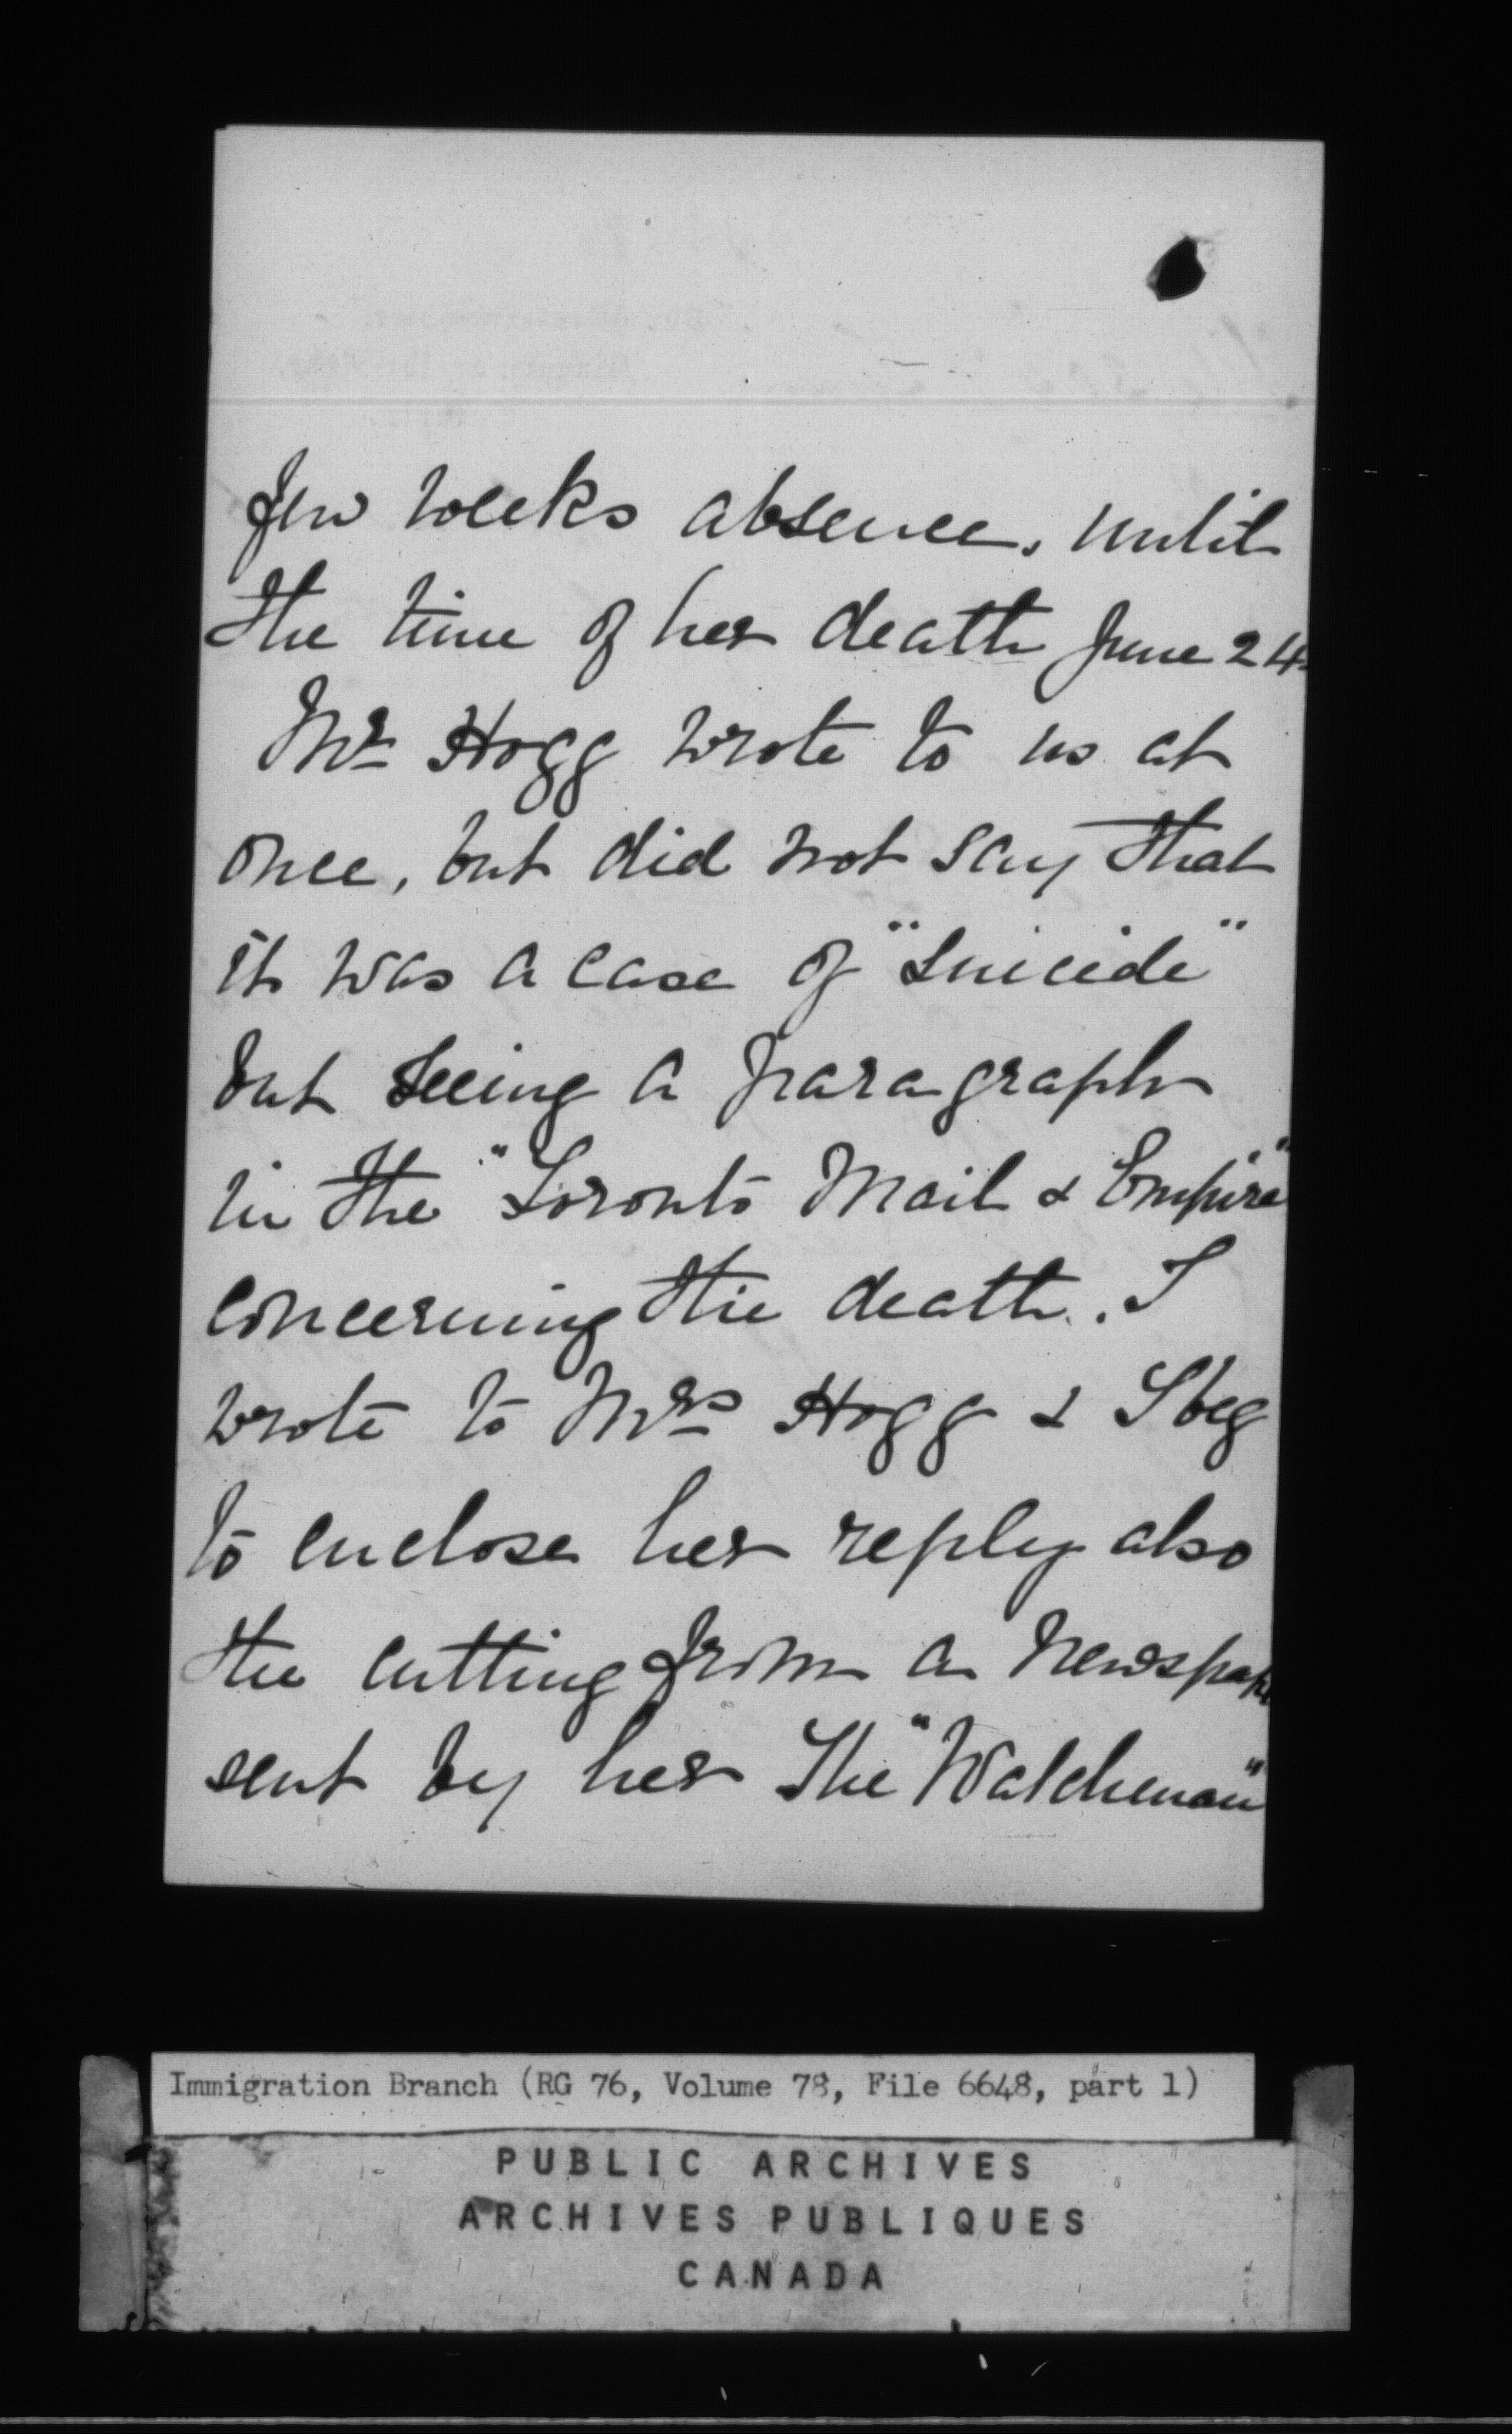 few weeks absence, until
the time of her death June 24
Mr Hogg wrote to us at
once, but did not say that
it was a case of "Suicide"
but seeing a paragraph
in the "Toronto Mail & Empire"
concerning the death. I
wrote to Mrs Hogg & I beg
to enclose her reply also
the cutting from a Newspap
sent by her The "Watchman"
Immigration Branch (RG 76, Volume 78, File 6648, part 1)
PUBLIC ARCHIVES
ARCHIVES PUBLIQUES
CANADA